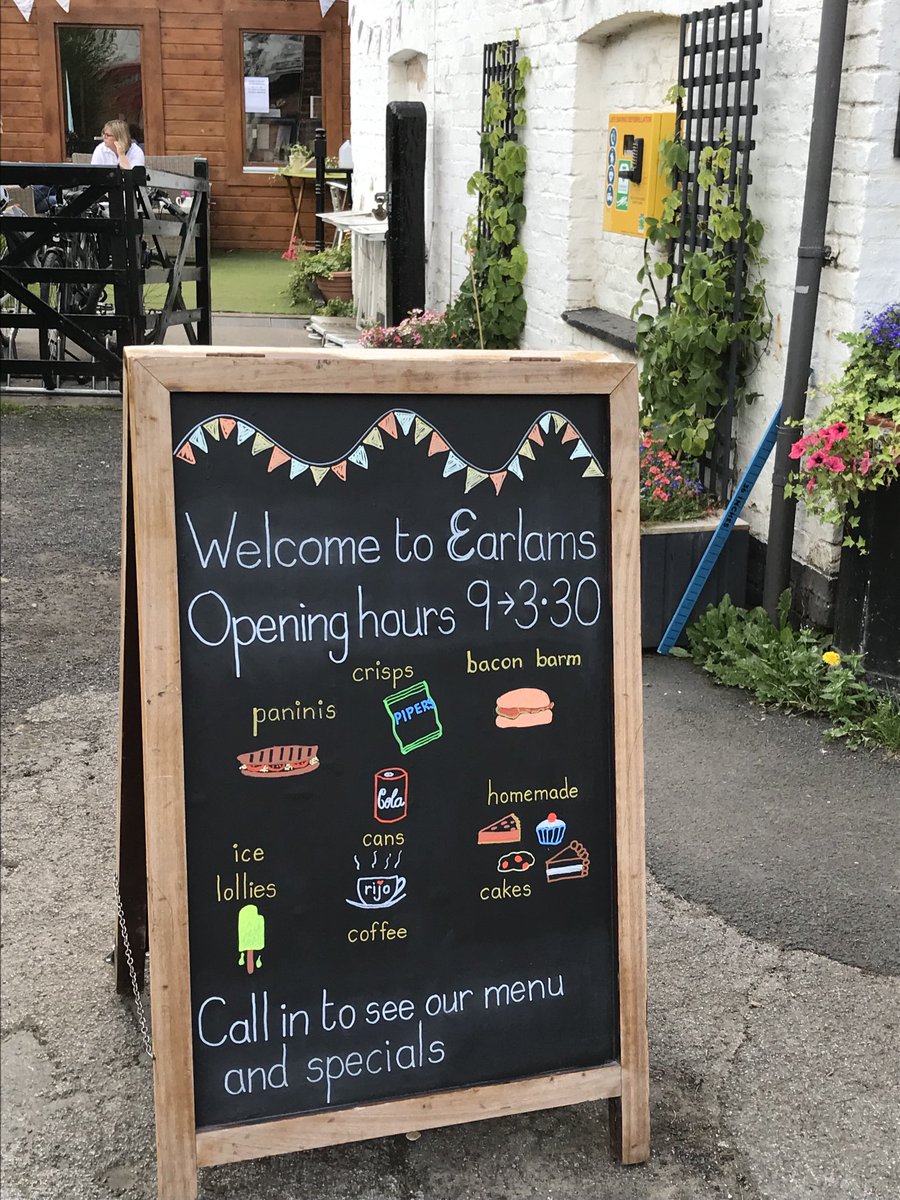 Welcome to Earlams
Opening hours 9→3·30
crisps
bacon barm
paninis
PIPERS
Cola
cans
homemade
cakes
ice
lollies
rijo
coffee
Call in to see our menu
and specials